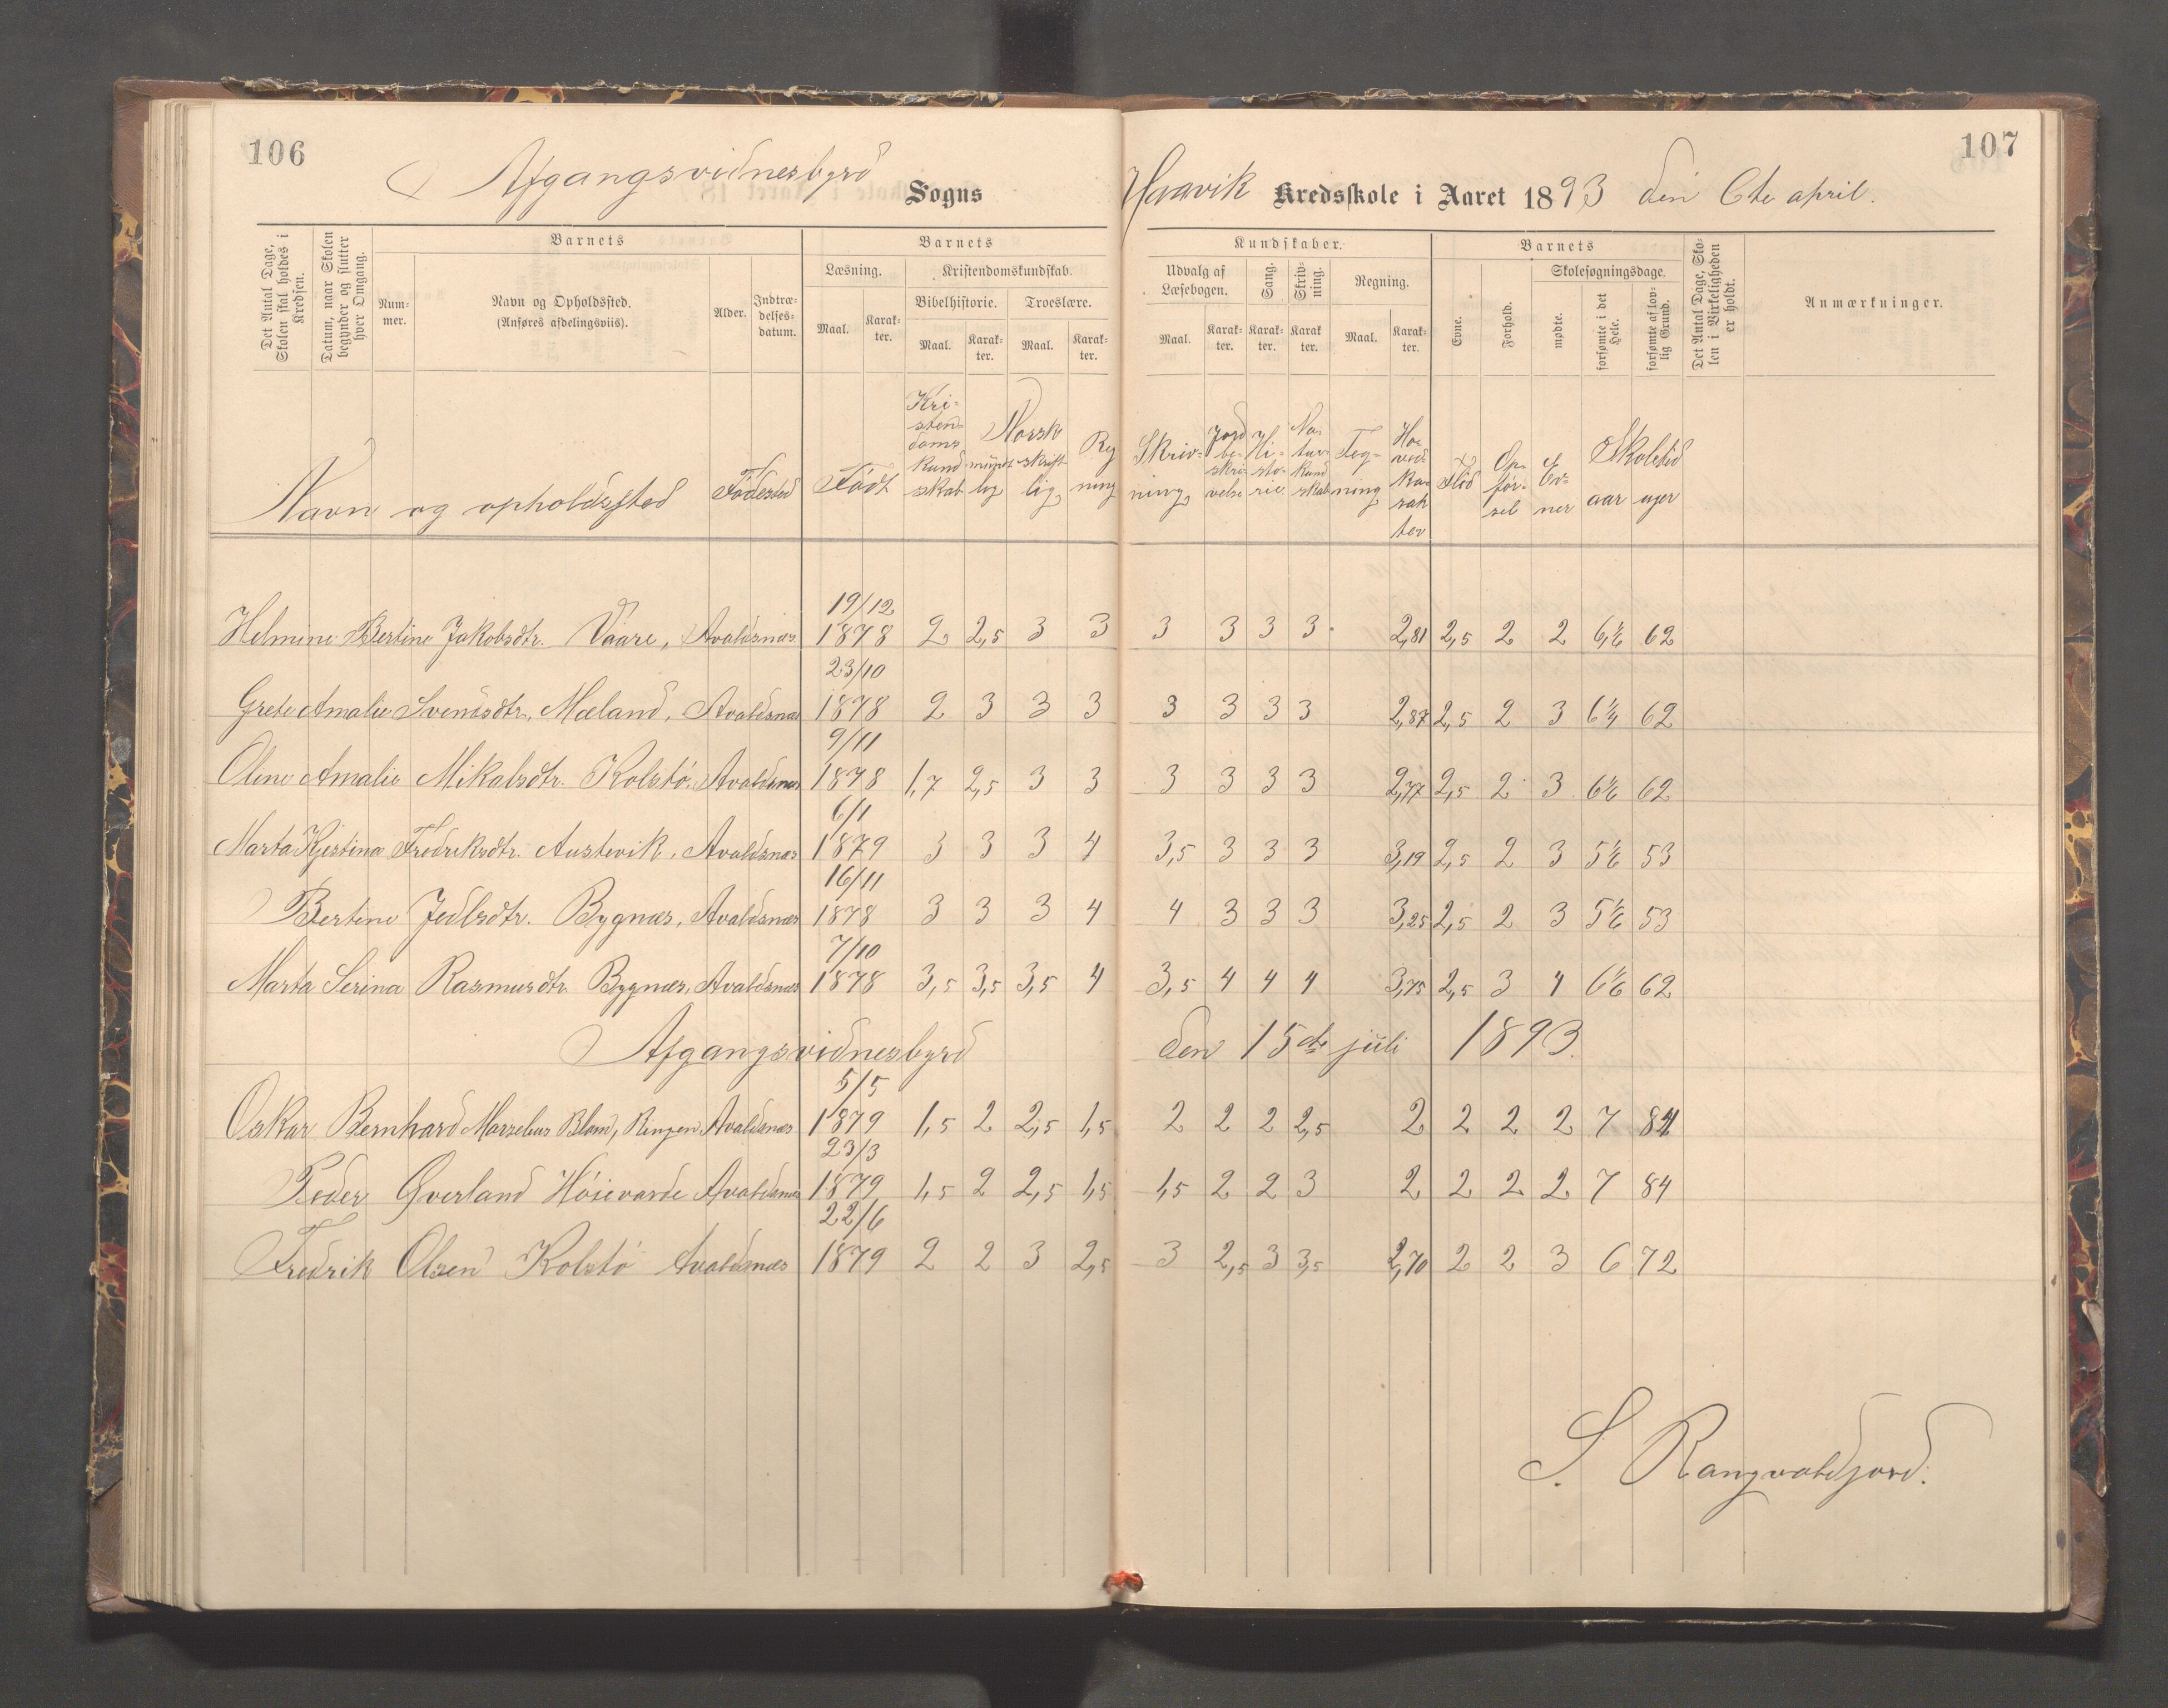 106
107
Afgangsvidnesbyrd Sogns Haavik Kredsskole i Aaret 1893 den 6te april.
Det Antal Dage, Skolen skal holdes i Kredsen.
Datum, naar Skolen begynder og slutter hver Omgang.
Barnets
Num-mer.
Navn og Opholdssted.
(Anføres afdelingsviis).
Alder.
Indtræ-delses-datum.
Barnets
Læsning.
Maal.
Karak-ter.
Kristendomskundskab.
Bibelhistorie.
Maal.
Karak-ter.
Troeslære.
Maal.
Karak-ter.
Kundskaber.
Udvalg af Læsebogen.
Maal.
Karak-ter.
Sang.
Karak-ter.
Skriv-ning.
Karak-ter.
Regning.
Maal.
Karak-ter.
Barnets
Evne.
Forhold.
Skolesøgningsdage.
mødte.
forsømte i det Hele.
forsømte af lov-lig Grund.
Det Antal Dage, Sko-len i Virkeligheden er holdt.
Anmærkninger.
Navn og opholdssted Fødested Født Kri-sten-doms kund skab Norsk mundt lig skrift lig Reg ning Skriv-ning Jord be-skri-velse Hi-sto-rie Na-tur-kund skab Teg-ning Ho-ved-ka-rak ter Flid Op-før-sel Ev-ner Skoletid aar uger
19/12
Helmine Bertine Jakobsdtr. Vaare, Avaldsnæs 1878 2 2,5 3 3 3 3 3 3 2,81 2,5 2 2 6 1/6 62
23/10
Grete Amalie Svendsdtr., Mæland, Avaldsnæs 1878 2 3 3 3 3 3 3 3 2,87 2,5 2 3 6 1/4 62
9/11
Oline Amalie Mikalsdtr. Kolstø. Avaldsnæs 1878 1,7 2,5 3 3 3 3 3 3 2,77 2,5 2 3 6 1/6 62
6/1
Marta Kjestina Fredreksdtr. Austevik, Avaldsnæs 1879 3 3 3 4 3,5 3 3 3 3,19 2,5 2 3 5 1/6 53
16/11
Bertine Jedlsdtr. Bygnæs, Avaldsnæs 1878 3 3 3 4 4 3 3 3 3,25 2,5 2 3 5 1/6 53
7/10
Marta Serina Rasmusdtr. Bygnæs, Avaldsnæs 1878 3,5 3,5 3,5 4 3,5 4 4 4 3,75 2,5 3 4 6 1/6 62
Afgangsvidnesbyrd den 15de juli 1893.
5/5
Oskar Bernhard Marselius Blom, Ringen Avaldsnæs 1879 1,5 2 2,5 1,5 2 2 2 2,5 2 2 2 2 7 84
23/3
Peder Qverland Høievarde Avaldsnæs 1879 1,5 2 2,5 1,5 1,5 2 2 3 2 2 2 2 7 84
22/6
Fredrik Olsen Kolstø Avaldsnæs 1879 2 2 3 2,5 3 2,5 3 3,5 2,70 2 2 3 6 72
S. Rangvaldjord.